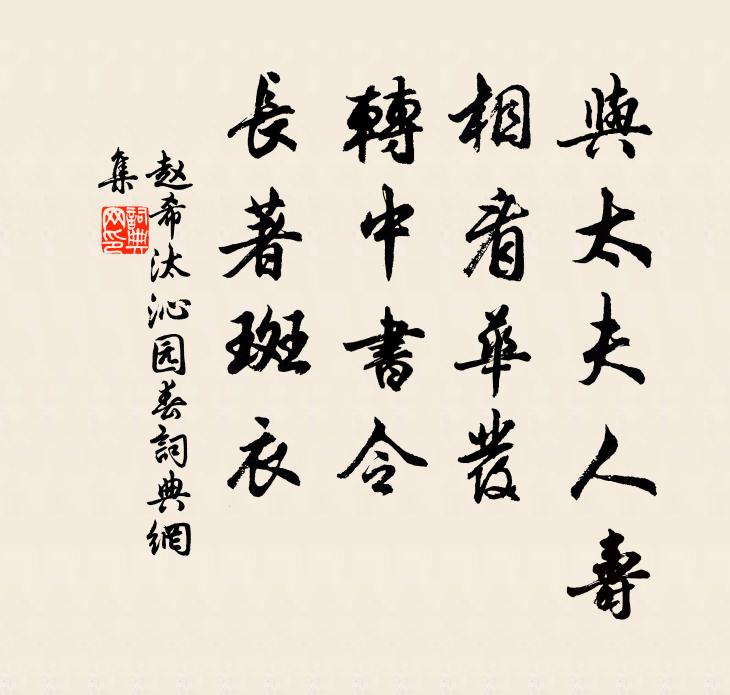 與太夫人壽
相看華發
轉中書令
長著斑衣
赵希汰沁园春詞典網
集
詞典網印